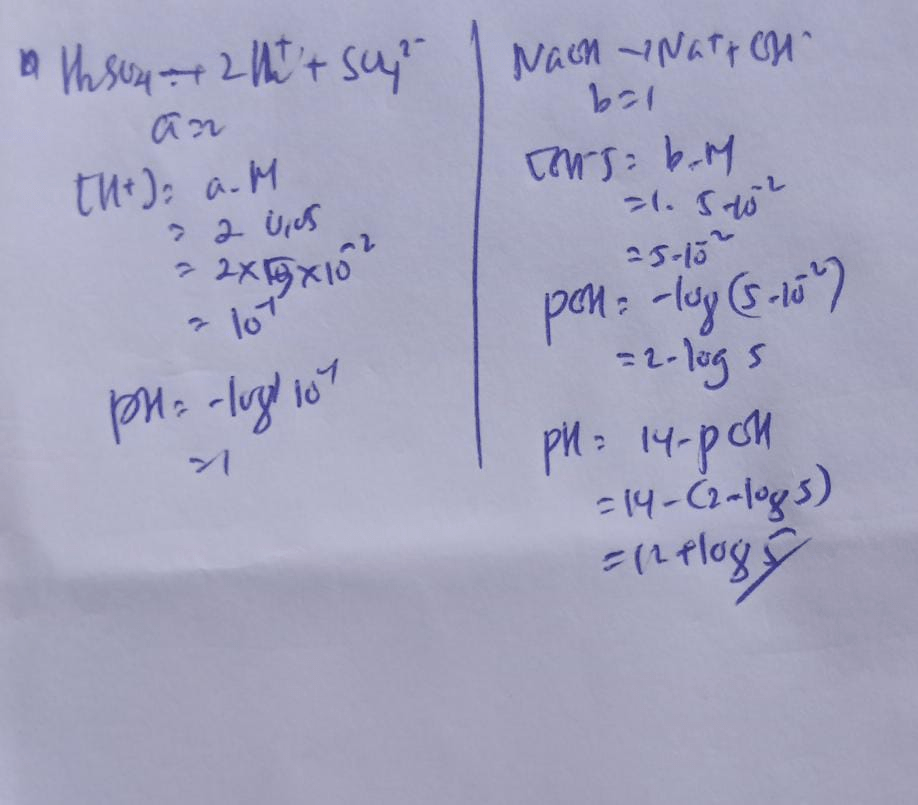 H₂SO₄ → 2H⁺ + SO₄²⁻
a = 2
[H+] = a . M
= 2 0,05
= 2 × 5 × 10⁻²
= 10⁻¹
pH = -log 10⁻¹
= 1
NaOH → Na⁺ + OH⁻
b = 1
[OH⁻] = b . M
= 1 . 5 . 10⁻²
= 5 . 10⁻²
pOH = -log (5 . 10⁻²)
= 2 - log 5
pH = 14 - pOH
= 14 - (2 - log 5)
= 12 + log 5